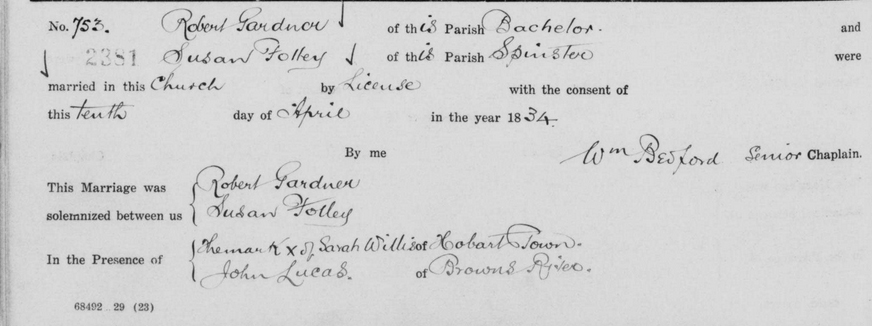 No. 753. Robert Gardner of this Parish Bachelor. and
2381 Susan Folley of this Parish Spinster were
married in this Church by License with the consent of
this tenth day of April in the year 1834.
By me Wm Bedford Senior Chaplain.
This Marriage was solemnized between us { Robert Gardner
Susan Folley
In the Presence of { The mark x of Sarah Willis of Hobart Town.
John Lucas. of Browns River.
68492 29 (23)